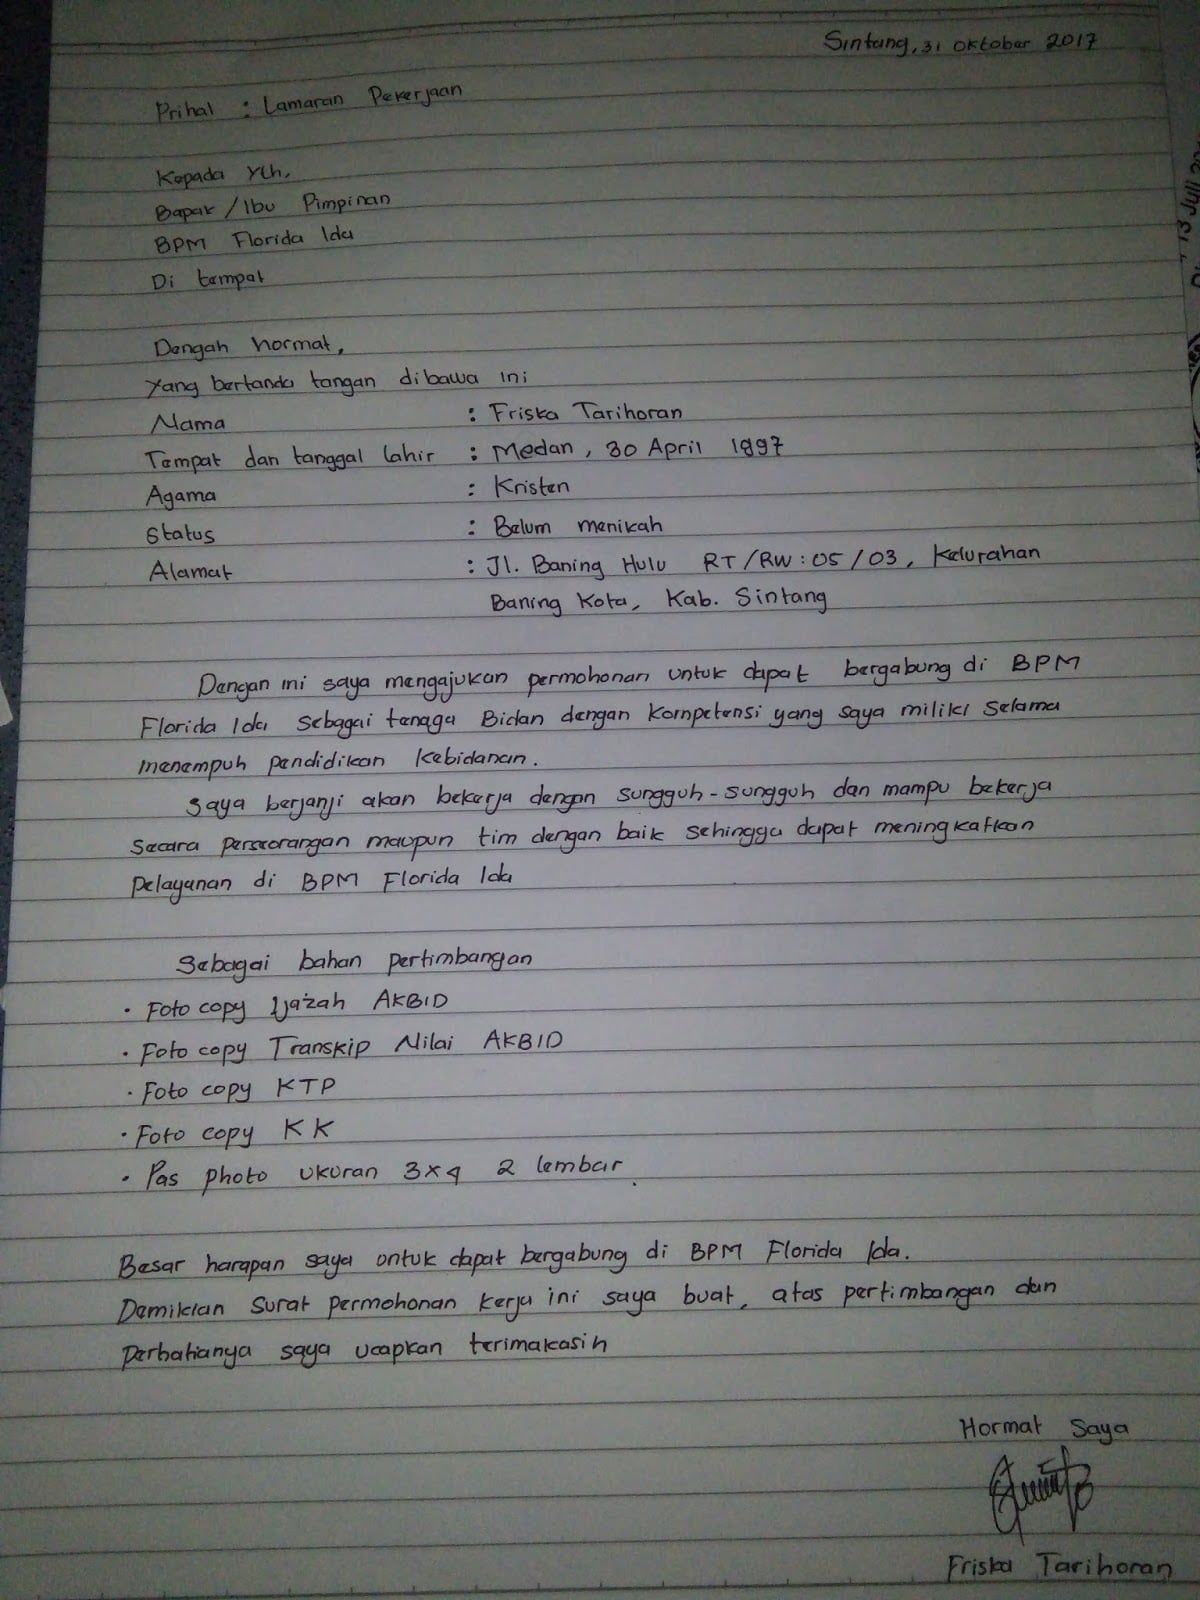 Sintang, 31 Oktober 2017
Prihal : Lamaran Pekerjaan
Kepada Yth,
Bapak / Ibu Pimpinan
BPM Florida Ida
Di tempat
Dengah hormat,
Yang bertanda tangan dibawa ini
Nama : Friska Tarihoran
Tempat dan tanggal lahir : Medan, 30 April 1997
Agama : Kristen
Status : Belum menikah
Alamat : Jl. Baning Hulu RT/RW : 05 / 03, Kelurahan
Baning Kota, Kab. Sintang
Dengan ini saya mengajukan permohonan untuk dapat bergabung di BPM
Florida Ida sebagai tenaga Bidan dengan kompetensi yang saya miliki selama
menempuh pendidikan Kebidanan.
Saya berjanji akan bekerja dengan sungguh-sungguh dan mampu bekerja
secara perseorangan maupun tim dengan baik sehingga dapat meningkatkan
pelayanan di BPM Florida Ida
Sebagai bahan pertimbangan
• Foto copy Ijazah AKBID
• Foto copy Transkip Nilai AKBID
• Foto copy KTP
• Foto copy KK
• Pas photo ukuran 3x4 2 lembar
Besar harapan saya ontuk dapat bergabung di BPM Florida Ida.
Demikian surat permohonan kerja ini saya buat, atas pertimbangan dan
perhatianya saya ucapkan terimakasih
Hormat Saya
Friska Tarihoran
13 Juli